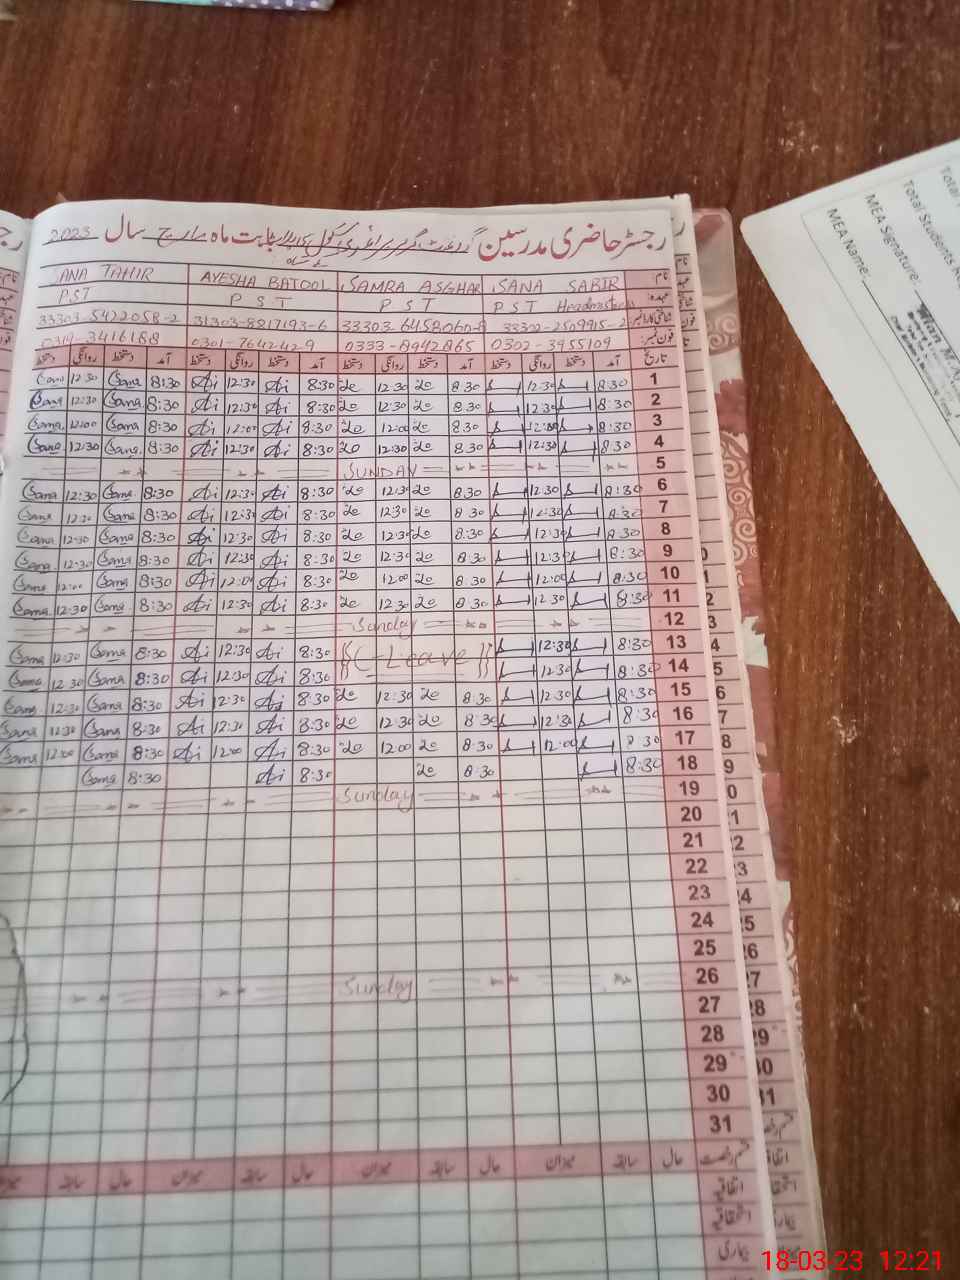 رجسٹر حاضری مدرسین گورنمنٹ گرلز پرائمری سکول بابت ماہ مارچ سال 2023
SANA TAHIR AYESHA BATOOL SAMRA ASGHAR SANA SABIR نام:
PST PST PST PST Headmistress عہدہ:
33303-5422058-2 31303-8217193-6 33303-6458060-8 33302-2509915-2 شناختی کارڈ نمبر:
0319-3416188 0301-764242-9 0333-8942865 0302-3955109 فون نمبر:
دستخط روانگی دستخط آمد دستخط روانگی دستخط آمد دستخط روانگی دستخط آمد دستخط روانگی دستخط آمد تاریخ
Sana 12:30 Sana 8:30 Ai 12:30 Ai 8:30 12:30 8:30 12:30 8:30 1
Sana 12:30 Sana 8:30 Ai 12:30 Ai 8:30 12:30 8:30 12:30 8:30 2
Sana 12:00 Sana 8:30 Ai 12:00 Ai 8:30 12:00 8:30 12:00 8:30 3
Sana 12:30 Sana 8:30 Ai 12:30 Ai 8:30 12:30 8:30 12:30 8:30 4
SUNDAY 5
Sana 12:30 Sana 8:30 Ai 12:30 Ai 8:30 12:30 8:30 12:30 8:30 6
Sana 12:30 Sana 8:30 Ai 12:30 Ai 8:30 12:30 8:30 12:30 8:30 7
Sana 12:30 Sana 8:30 Ai 12:30 Ai 8:30 12:30 8:30 12:30 8:30 8
Sana 12:30 Sana 8:30 Ai 12:30 Ai 8:30 12:30 8:30 12:30 8:30 9
Sana 12:00 Sana 8:30 Ai 12:00 Ai 8:30 12:00 8:30 12:00 8:30 10
Sana 12:30 Sana 8:30 Ai 12:30 Ai 8:30 12:30 8:30 12:30 8:30 11
Sunday 12
Sana 12:30 Sana 8:30 Ai 12:30 Ai 8:30 C-Leave 12:30 8:30 13
Sana 12:30 Sana 8:30 Ai 12:30 Ai 8:30 12:30 8:30 14
Sana 12:30 Sana 8:30 Ai 12:30 Ai 8:30 12:30 8:30 12:30 8:30 15
Sana 12:30 Sana 8:30 Ai 12:30 Ai 8:30 12:30 8:30 12:30 8:30 16
Sana 12:00 Sana 8:30 Ai 12:00 Ai 8:30 12:00 8:30 12:00 8:30 17
Sana 8:30 Ai 8:30 8:30 8:30 18
Sunday 19
20
21
22
23
24
25
Sunday 26
27
28
29
30
31
میزان سابقہ حال میزان سابقہ حال میزان سابقہ حال میزان سابقہ حال قسم رخصت
اتفاقیہ
استحقاقیہ
بیماری
Total Students
MEA Signature:
MEA Name:
18-03-23 12:21